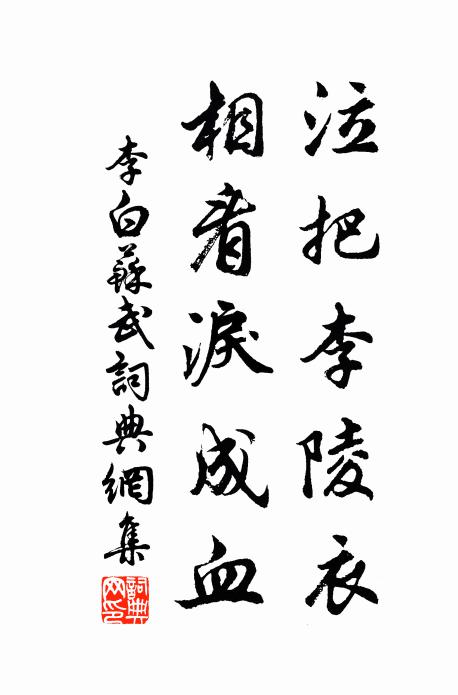 泣把李陵衣
相看淚成血
李白蘇武詞典網集
詞典网印